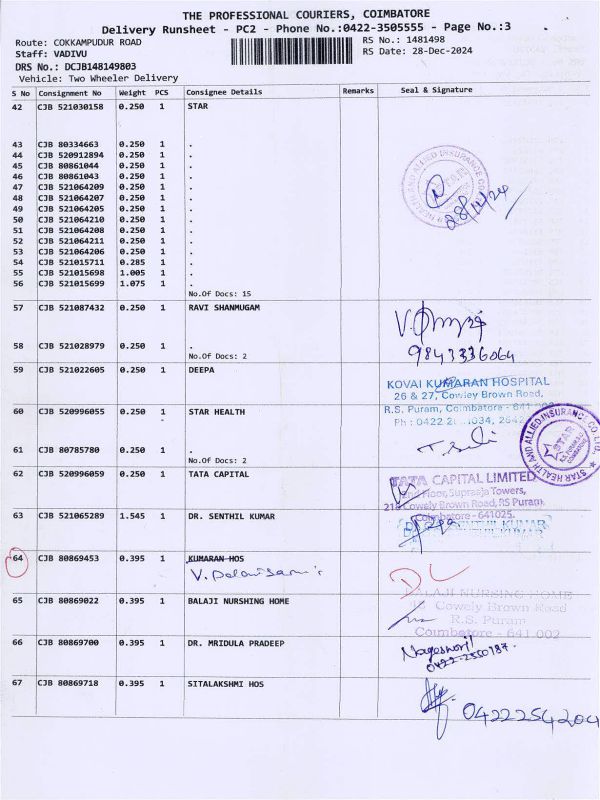 THE PROFESSIONAL COURIERS, COIMBATORE
Delivery Runsheet - PC2 - Phone No.:0422-3505555 - Page No.:3
Route: COKKAMPUDUR ROAD
Staff: VADIVU
DRS No.: DCJB148149803
Vehicle: Two Wheeler Delivery
RS No.: 1481498
RS Date: 28-Dec-2024
S No Consignment No Weight PCS Consignee Details Remarks Seal & Signature
42 CJB 521030158 0.250 1 STAR
43 CJB 80334663 0.250 1 .
44 CJB 520912894 0.250 1 .
45 CJB 80861044 0.250 1 .
46 CJB 80861043 0.250 1 .
47 CJB 521064209 0.250 1 .
48 CJB 521064207 0.250 1 .
49 CJB 521064205 0.250 1 .
50 CJB 521064210 0.250 1 .
51 CJB 521064208 0.250 1 .
52 CJB 521064211 0.250 1 .
53 CJB 521064206 0.250 1 .
54 CJB 521015711 0.285 1 .
55 CJB 521015698 1.005 1 .
56 CJB 521015699 1.075 1 .
No.Of Docs: 15
HEALTH AND ALLIED INSURANCE CO
28/12/24
57 CJB 521087432 0.250 1 RAVI SHANMUGAM
58 CJB 521028979 0.250 1 .
No.Of Docs: 2
9843336064
59 CJB 521022605 0.250 1 DEEPA
KOVAI KUMARAN HOSPITAL
26 & 27, Cowley Brown Road,
R.S. Puram, Coimbatore - 641 002
Ph : 0422 2
60 CJB 520996055 0.250 1 STAR HEALTH
61 CJB 80785780 0.250 1 .
No.Of Docs: 2
STAR HEALTH AND ALLIED INSURANCE CO. LTD.
STAR
62 CJB 520996059 0.250 1 TATA CAPITAL
TATA CAPITAL LIMITED
Floor, Supraaja Towers,
Cowely Brown Road, RS Puram,
Coimbatore - 641025.
63 CJB 521065289 1.545 1 DR. SENTHIL KUMAR
SENTHIL KUMAR
64 CJB 80869453 0.395 1 KUMARAN HOS
V. Palanisami
DL
65 CJB 80869022 0.395 1 BALAJI NURSHING HOME
BALAJI NURSING HOME
Cowely Brown Road
R.S. Puram
Coimbatore - 641 002
66 CJB 80869700 0.395 1 DR. MRIDULA PRADEEP
0422-2550187.
67 CJB 80869718 0.395 1 SITALAKSHMI HOS
0422254204